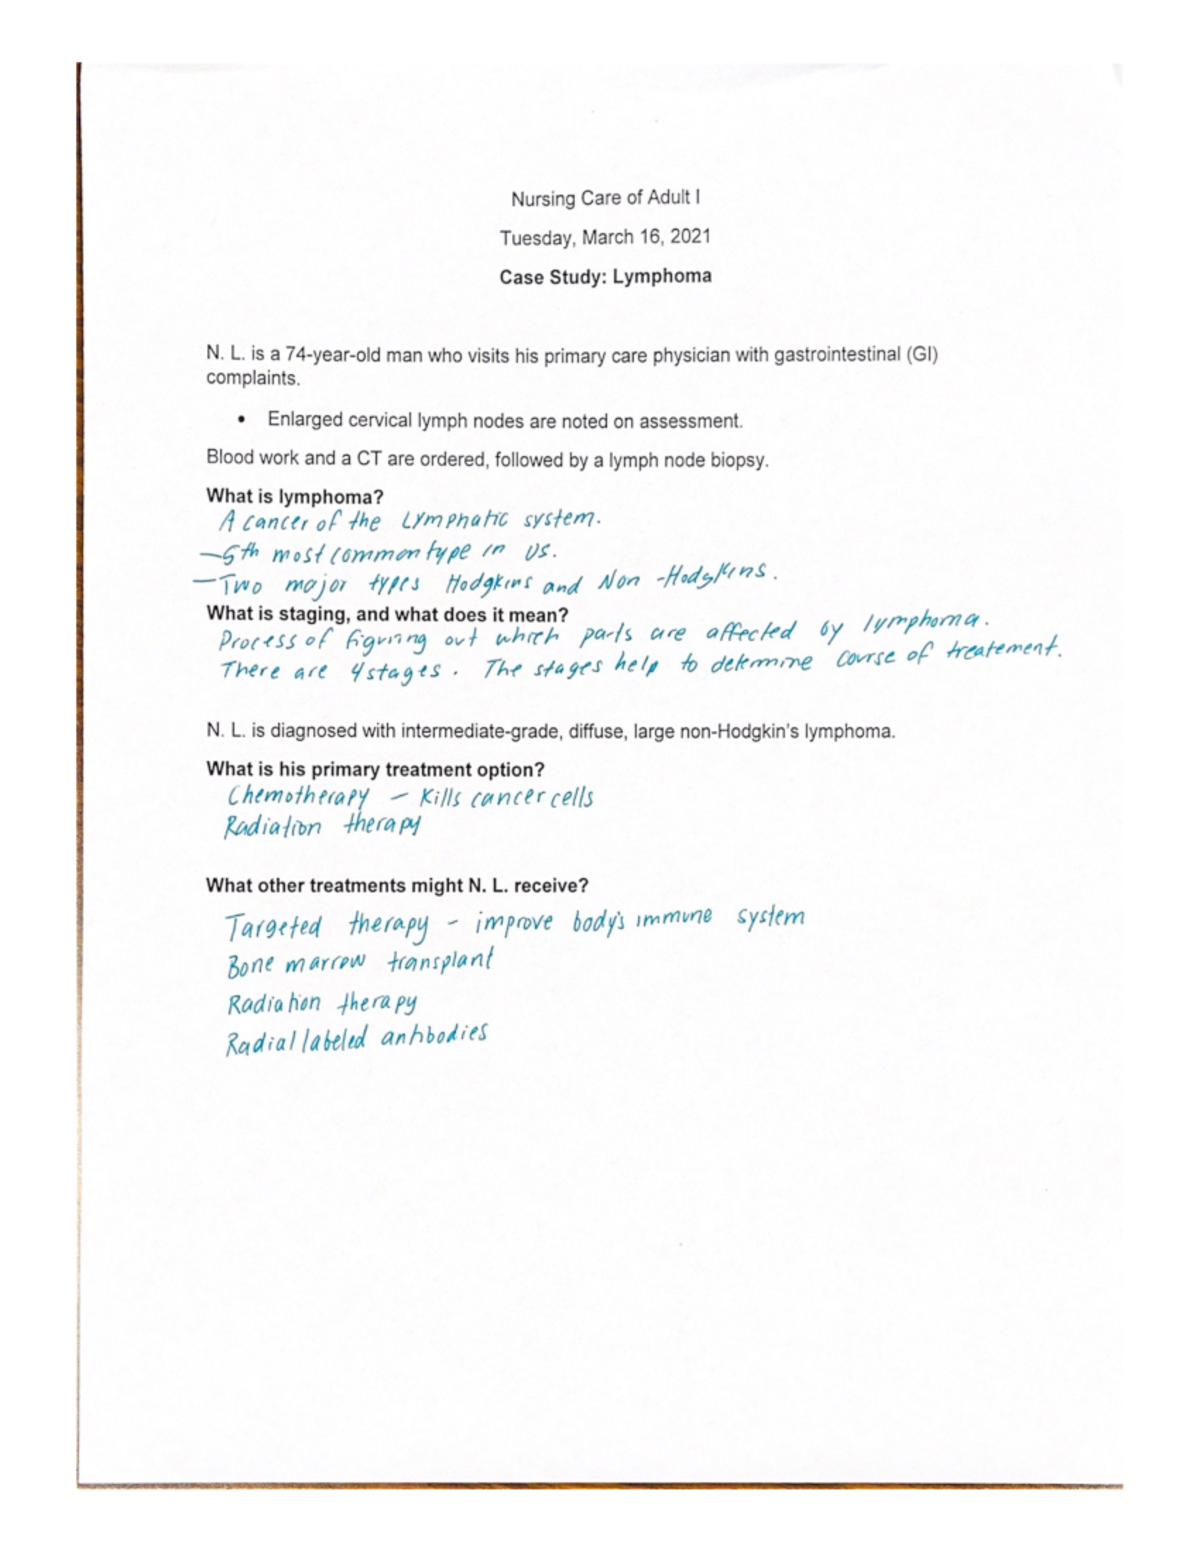 Nursing Care of Adult I
Tuesday, March 16, 2021
Case Study: Lymphoma
N. L. is a 74-year-old man who visits his primary care physician with gastrointestinal (GI)
complaints.
• Enlarged cervical lymph nodes are noted on assessment.
Blood work and a CT are ordered, followed by a lymph node biopsy.
What is lymphoma?
A cancer of the Lymphatic system.
—5th most common type in US.
—Two major types Hodgkins and Non-Hodgkins.
What is staging, and what does it mean?
Process of figuring out which parts are affected by lymphoma.
There are 4 stages. The stages help to determine course of treatement.
N. L. is diagnosed with intermediate-grade, diffuse, large non-Hodgkin's lymphoma.
What is his primary treatment option?
Chemotherapy – Kills cancer cells
Radiation therapy
What other treatments might N. L. receive?
Targeted therapy - improve body's immune system
Bone marrow transplant
Radiation therapy
Radial labeled antibodies